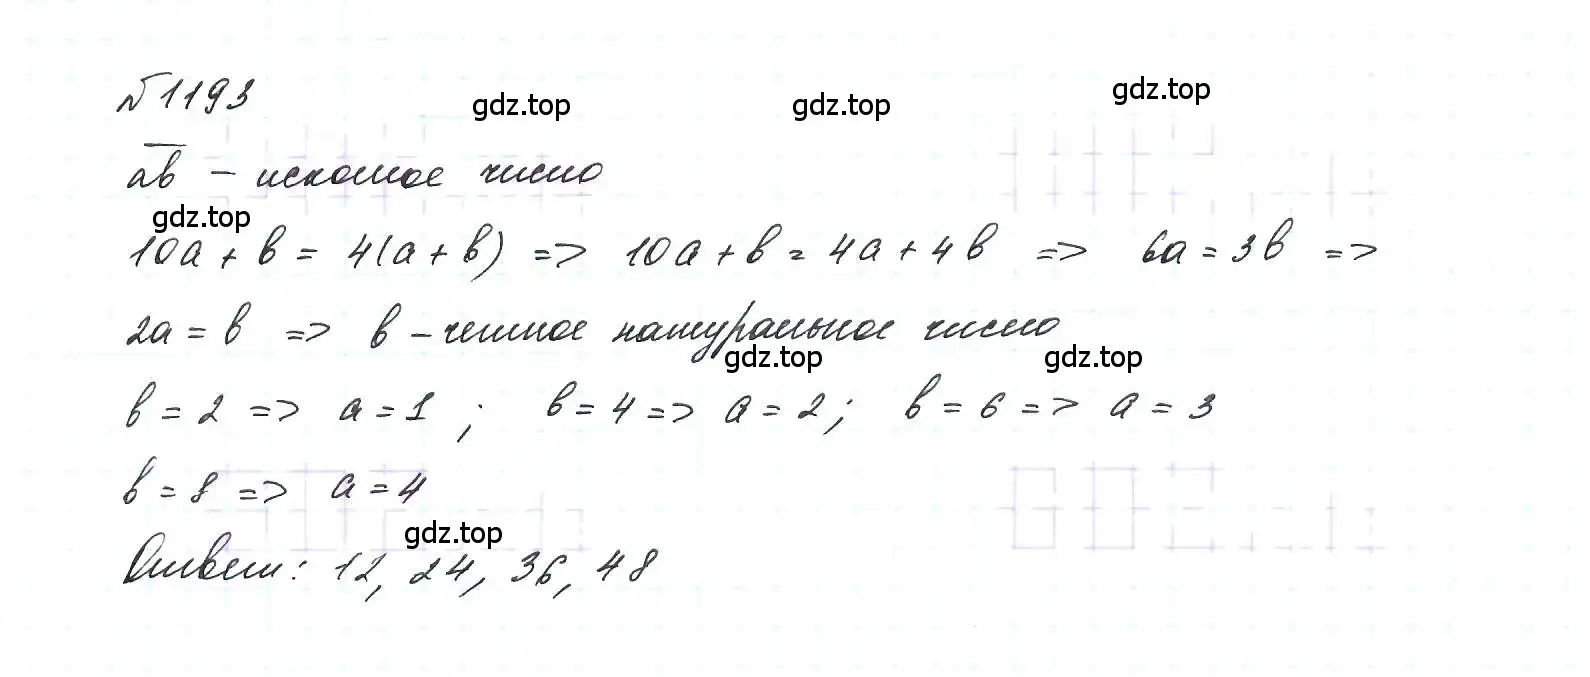 №1193
gdz.top gdz.top gdz.top
ab - искомое число
gdz.top
10a + b = 4(a + b) => 10a + b = 4a + 4b => 6a = 3b =>
2a = b => b - четное натуральное число
gdz.top gdz.top
b = 2 => a = 1 ; b = 4 => a = 2; b = 6 => a = 3
b = 8 => a = 4
gdz.top
Ответ: 12, 24, 36, 48